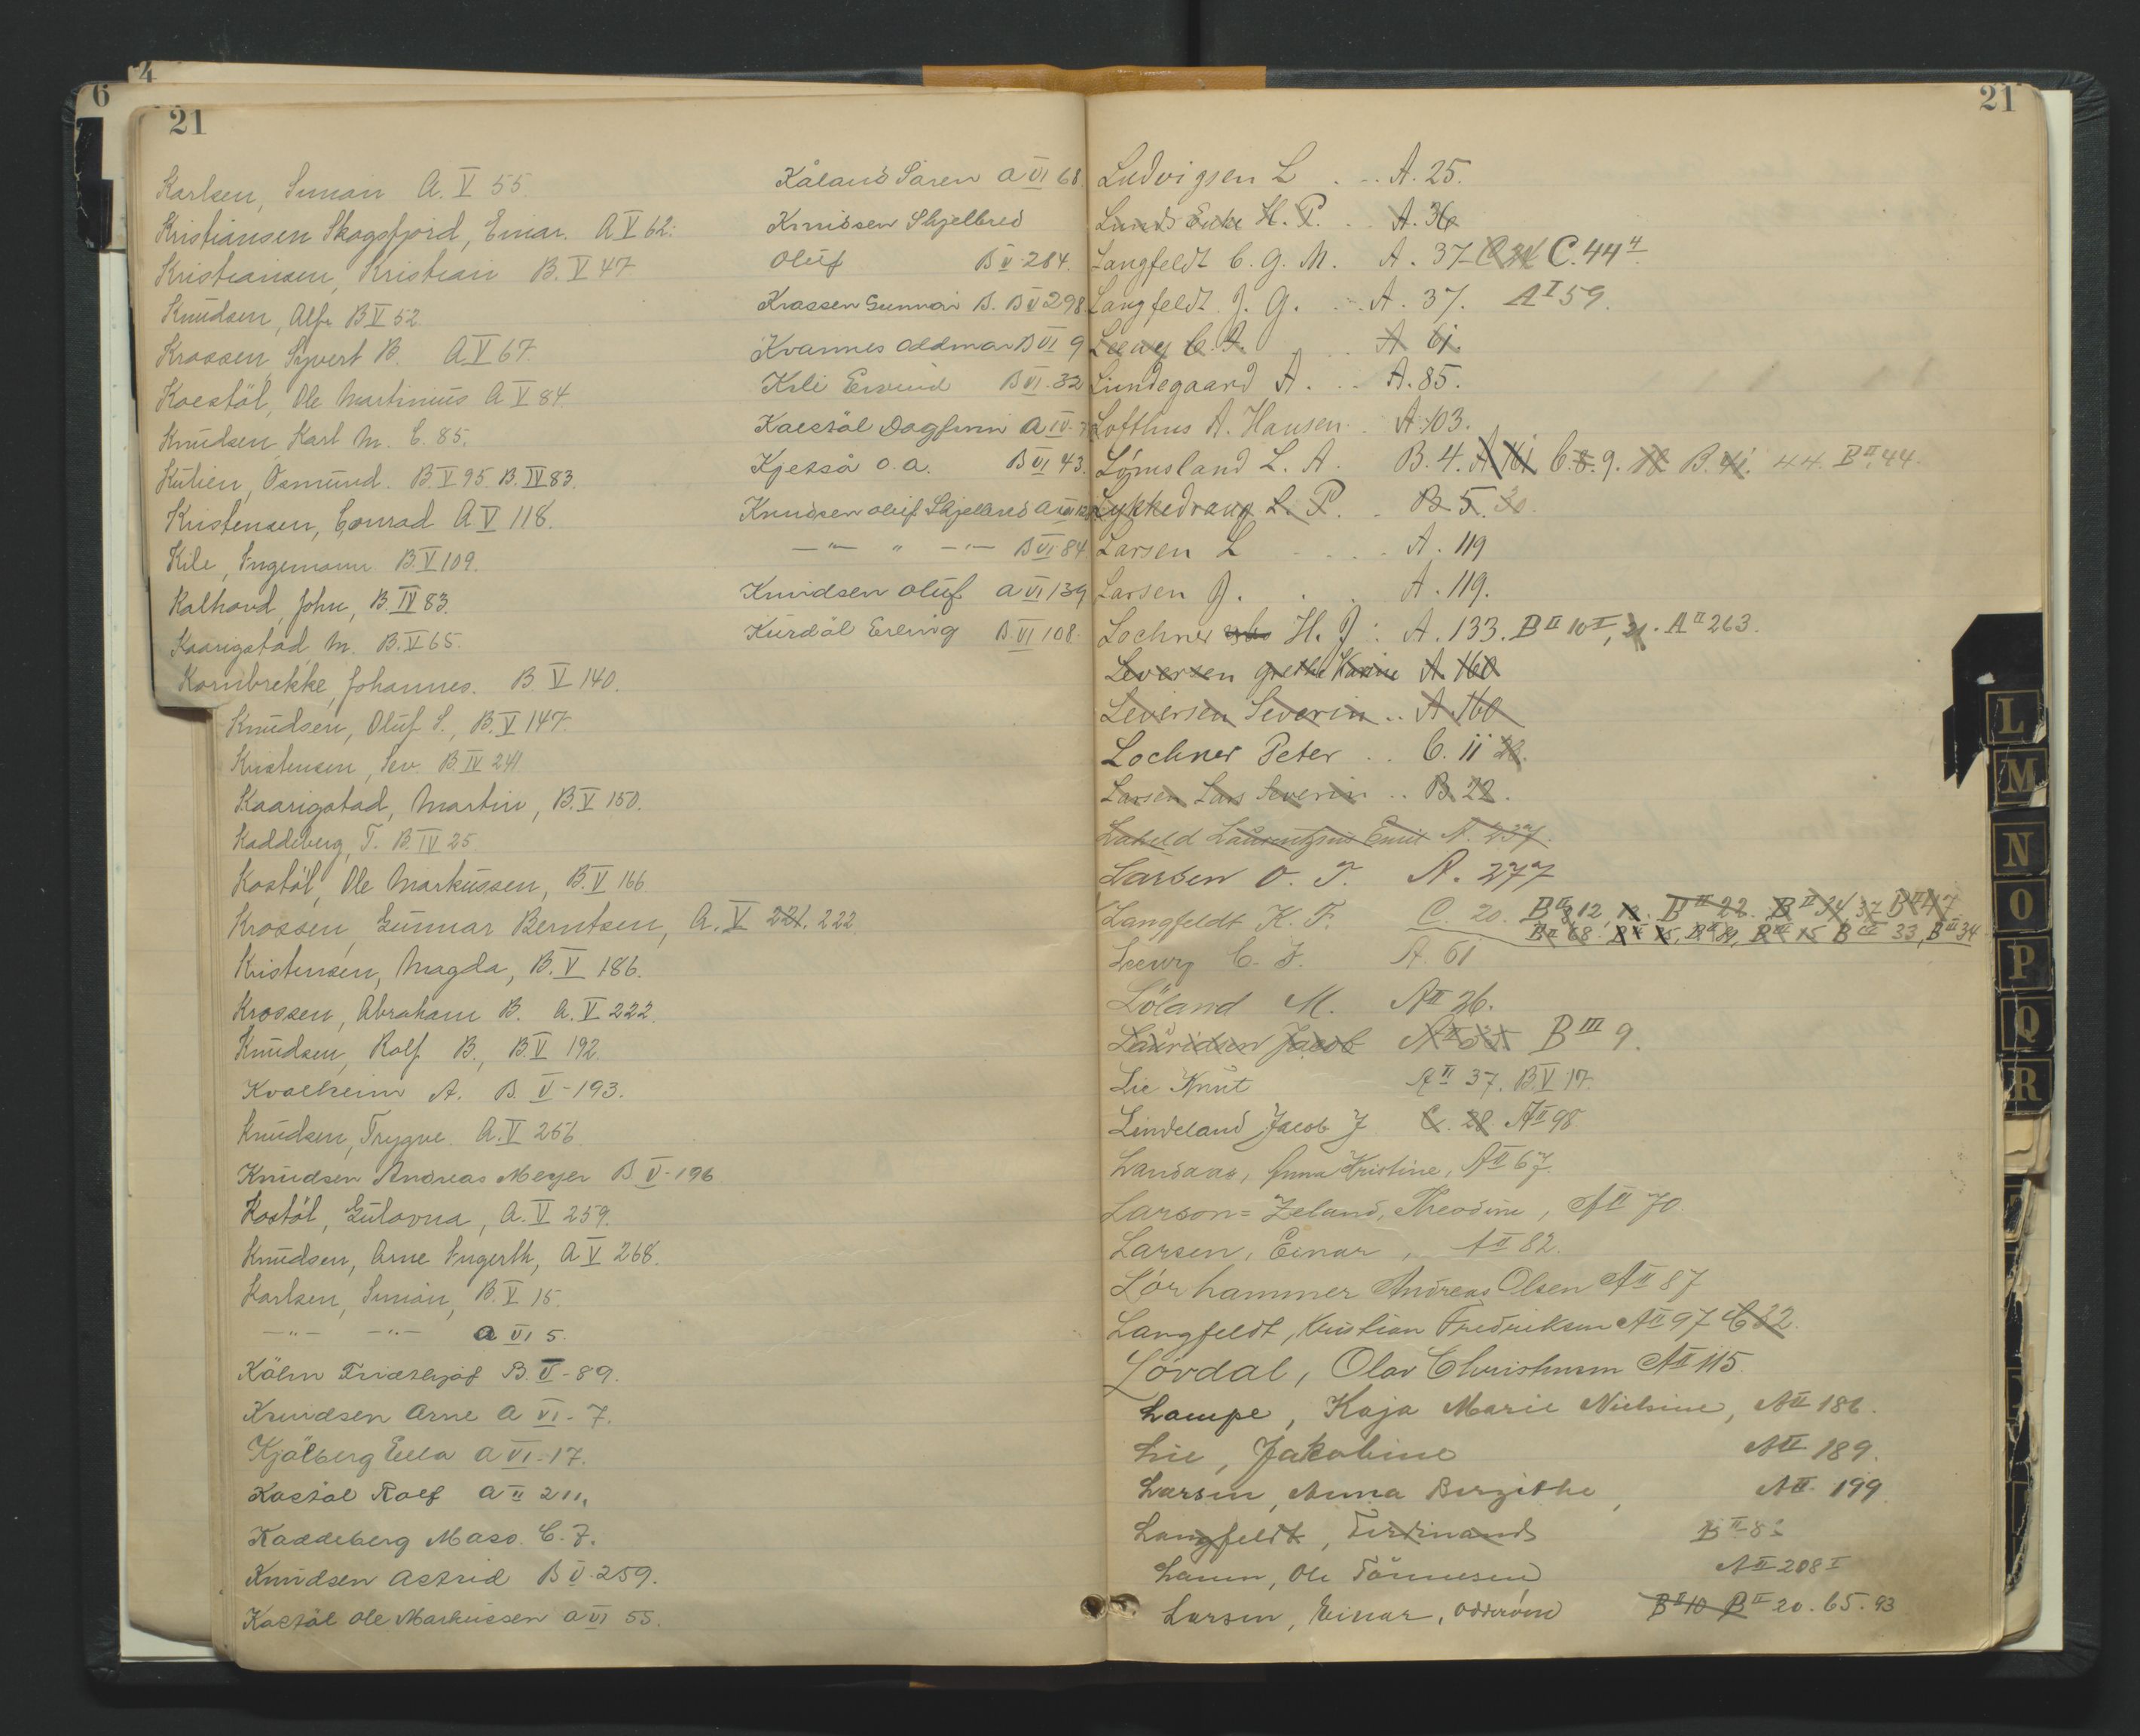 4
6
21
Karlsen, Simon A. V 55.
Kristiansen Skogsfjord, Einar. A V 62.
Kristiansen, Kristian B. V 47
Knudsen, Alfr. B V 52.
Krossen, Syvert B. A V 67.
Kostöl, Ole Martinius A V 84
Knudsen, Karl M. C. 85.
Kulien, Osmund. B V 95 B. IV 83.
Kristensen, Conrad A V 118.
Kile, Ingemann B. V 109.
Kalhovd, John, B. IV 83.
Kaarigstad, M. B. V 65.
Kornbrekke, Johannes. B V 140.
Knudsen, Oluf S., B. V 147.
Kristensen, Sev. B. IV 241
Kaarigstad, Martin, B. V 150.
Kaddeberg, T. B. IV 25
Kostöl, Ole Markussen, B. V 166
Krossen, Gunnar Berntsen, A. V 221. 222
Kristensen, Magda, B. V 186.
Krossen, Abraham B. A. V 222.
Knudsen, Rolf B., B. V 192.
Kvalheim A. B. V - 193.
Knudsen, Trygve. A. V 256
Knudsen Andreas Meyer B V - 196
Kostöl, Gulovna, A. V 259.
Knudsen, Arne Ingerth, A V 268.
Karlsen, Simon, B. V 15.
—"— —"— A VI 5.
Kålin Fridthjof B. V - 89.
Knudsen Arne A VI - 7.
Kjölberg Ella A VI - 17.
Kostöl Rolf A II 211,
Kaddeberg Maso. C. 7.
Knudsen Astrid B V. 259.
Kostöl Ole Markussen A VI 55.
Kåland Søren A VI 68
Knudsen Skjelbred
Oluf B V 284.
Krossen Gunnar B. B V 298
Kvannes Oddmar B VI 9
Kile Eivind B VI. 32
Kostöl Dagfinn A IV.
Kjetså O. A. B VI 43.
Knudsen Oluf Skjelbred A VI
—"— " —"— B VI 84
Knudsen Oluf A VI 139
Kurdøl Erling B VI 108
21
Ludvigsen L . . . A. 25.
Lunds Enke H. P. . A. 36
Langfeldt C. G. M. A. 37 C. 44 4
Langfeldt J. G. . . A. 37. A I 59.
Leewy C. J. . . A 61.
Lundegaard A. . . A. 85.
Lofthus A. Hansen . A. 103.
Lømsland L. A. B. 4. A 161 C. 8. 9. 18 B. 41. 44. B II 44.
Lykkedrang L. P. . B 5. 30.
Larsen L . . . . A. 119
Larsen J. . . A. 119.
Lochner H. J. A. 133. B II 10 I, 21. A II 263.
Leversen Grethe Karine A. 160
Leversen Severin .. A. 160
Lochner Peter . . C. 11 28.
Larsen Lars Severin .. B. 22.
Laurentzius Emil A. 237.
Larsen O. T. A. 277
Langfeldt K. F. C. 20. B II 3, 12, 13. B II 22. B II 34, 37 B II 47
B II 68. B II 15, B II 84, B III 15 B III 33, B III 34
Leewy C. J. A. 61
Löland M. A II 26.
Lauridsen Jacob A II 35 B III 9.
Lie Knut A II 37. B. V 17.
Lindeland Jacob J C. 28 A II 98
Landaas, Anna Kristine, A II 67.
Larson = Zeland, Theodine, A II 70.
Larsen, Einar, A II 82.
Lörhammer Andreas Olsen A II 87
Langfeldt, Kristian Fredriksen A II 97 C 32.
Lövdal, Olav Christensen A II 115.
Lampe, Kaja Marie Nielsine, A II 186.
Lie, Jakobine A II 189.
Larsen, Anna Bergithe, A II 199
Langfeldt, Ferdinand B II - 8.
Larsen, Ole Tönnesen A II 208 I
Larsen, Einar, Odderöen B II 10 B II 20. 65. 93
L
M
N
O
P
Q
R